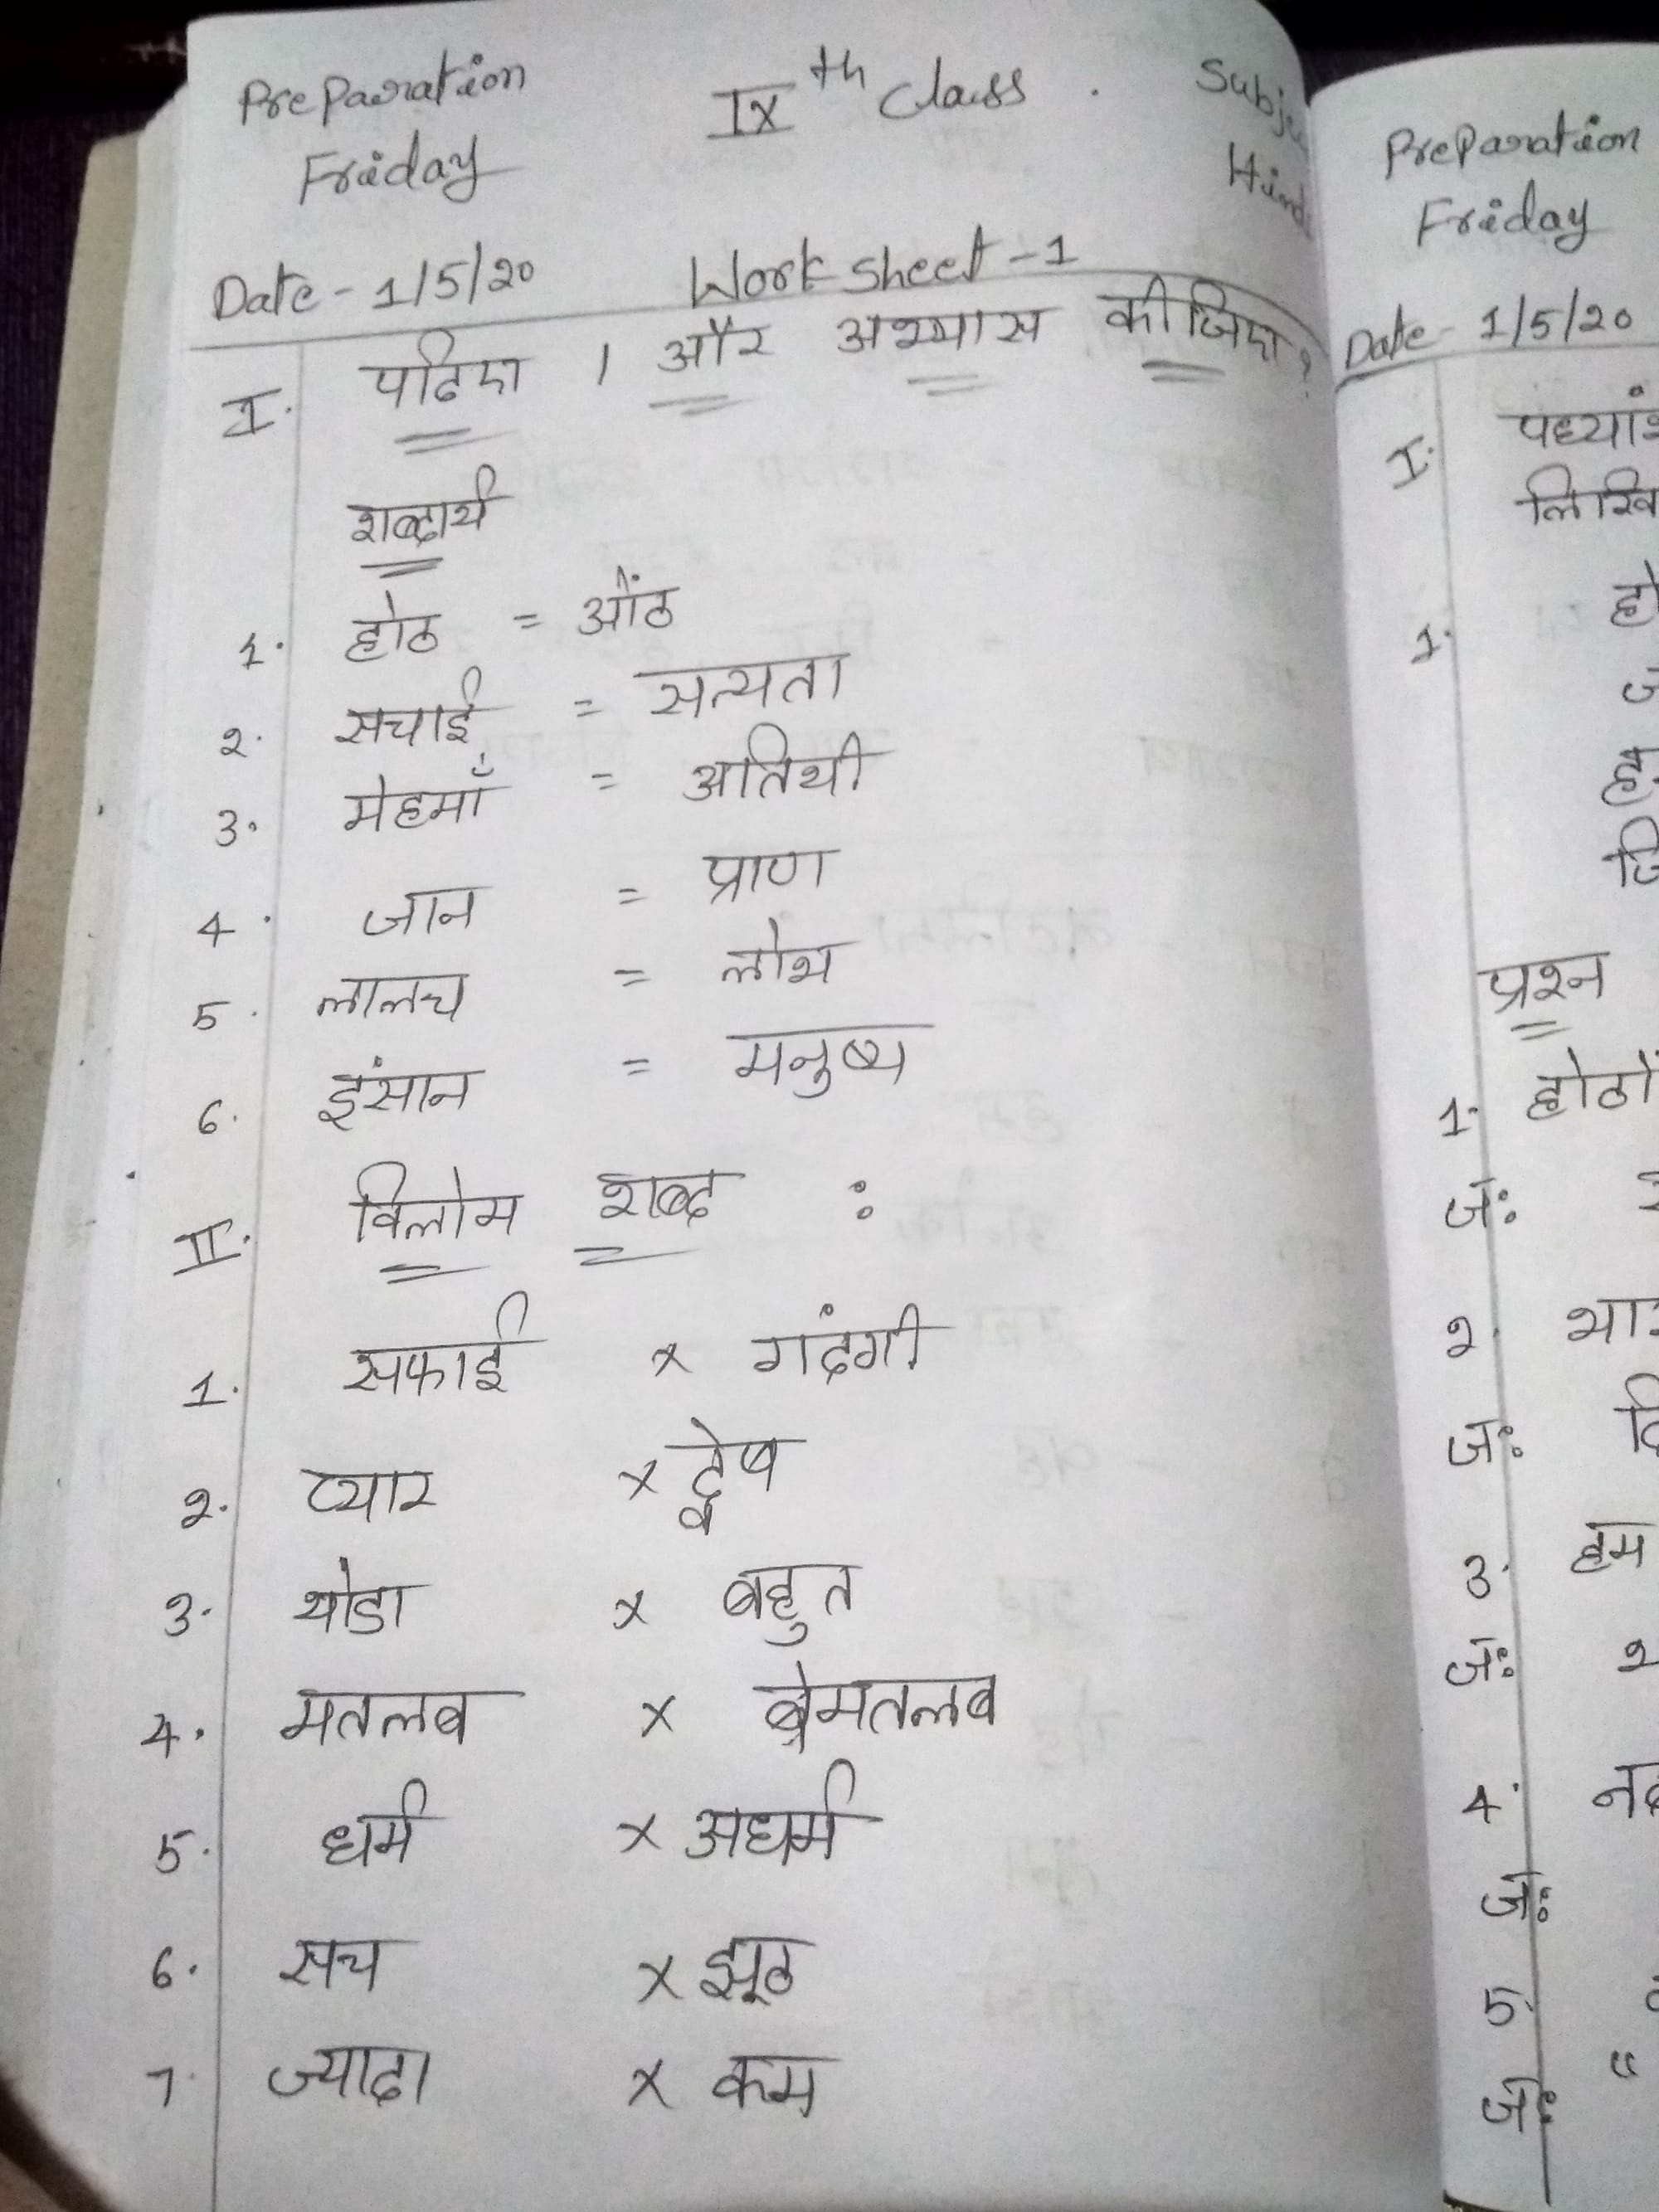 Preparation IXth Class . Subje
Friday Hind
Date - 1/5/20 Work sheet - 1
I. पढिए । और अभ्यास कीजिए ?
शब्दार्थ
1. होठ = ओंठ
2. सचाई = सत्यता
3. मेहमाँ = अतिथी
4. जान = प्राण
5. लालच = लोभ
6. इंसान = मनुष्य
II. विलोम शब्द :
1. सफाई x गदंगी
2. प्यार x द्वेष
3. थोडा x बहुत
4. मतलब x बेमतलब
5. धर्म x अधर्म
6. सच x झूठ
7. ज्यादा x कम
Preparation
Friday
Date - 1/5/20
I. पध्यांश
लिखि
1. हो
ज
ह
जि
प्रश्न
1. होठों
जः
2. भार
जः दि
3. हम
जः
4.
जः
5.
जः "